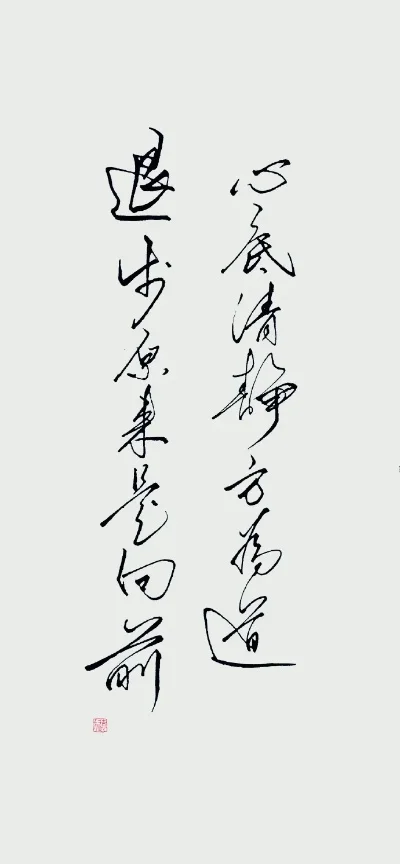 心底清静方为道
退步原来是向前